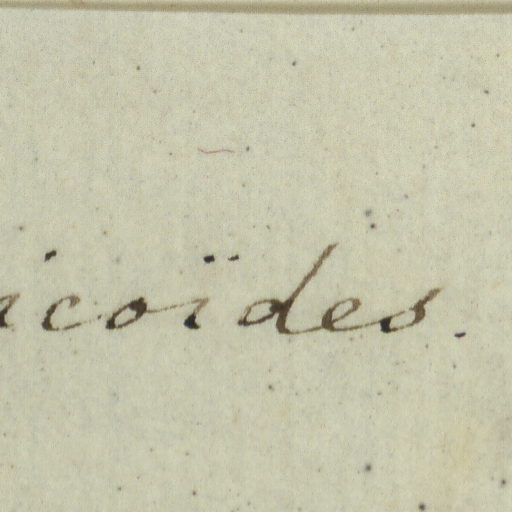 icoïdes.